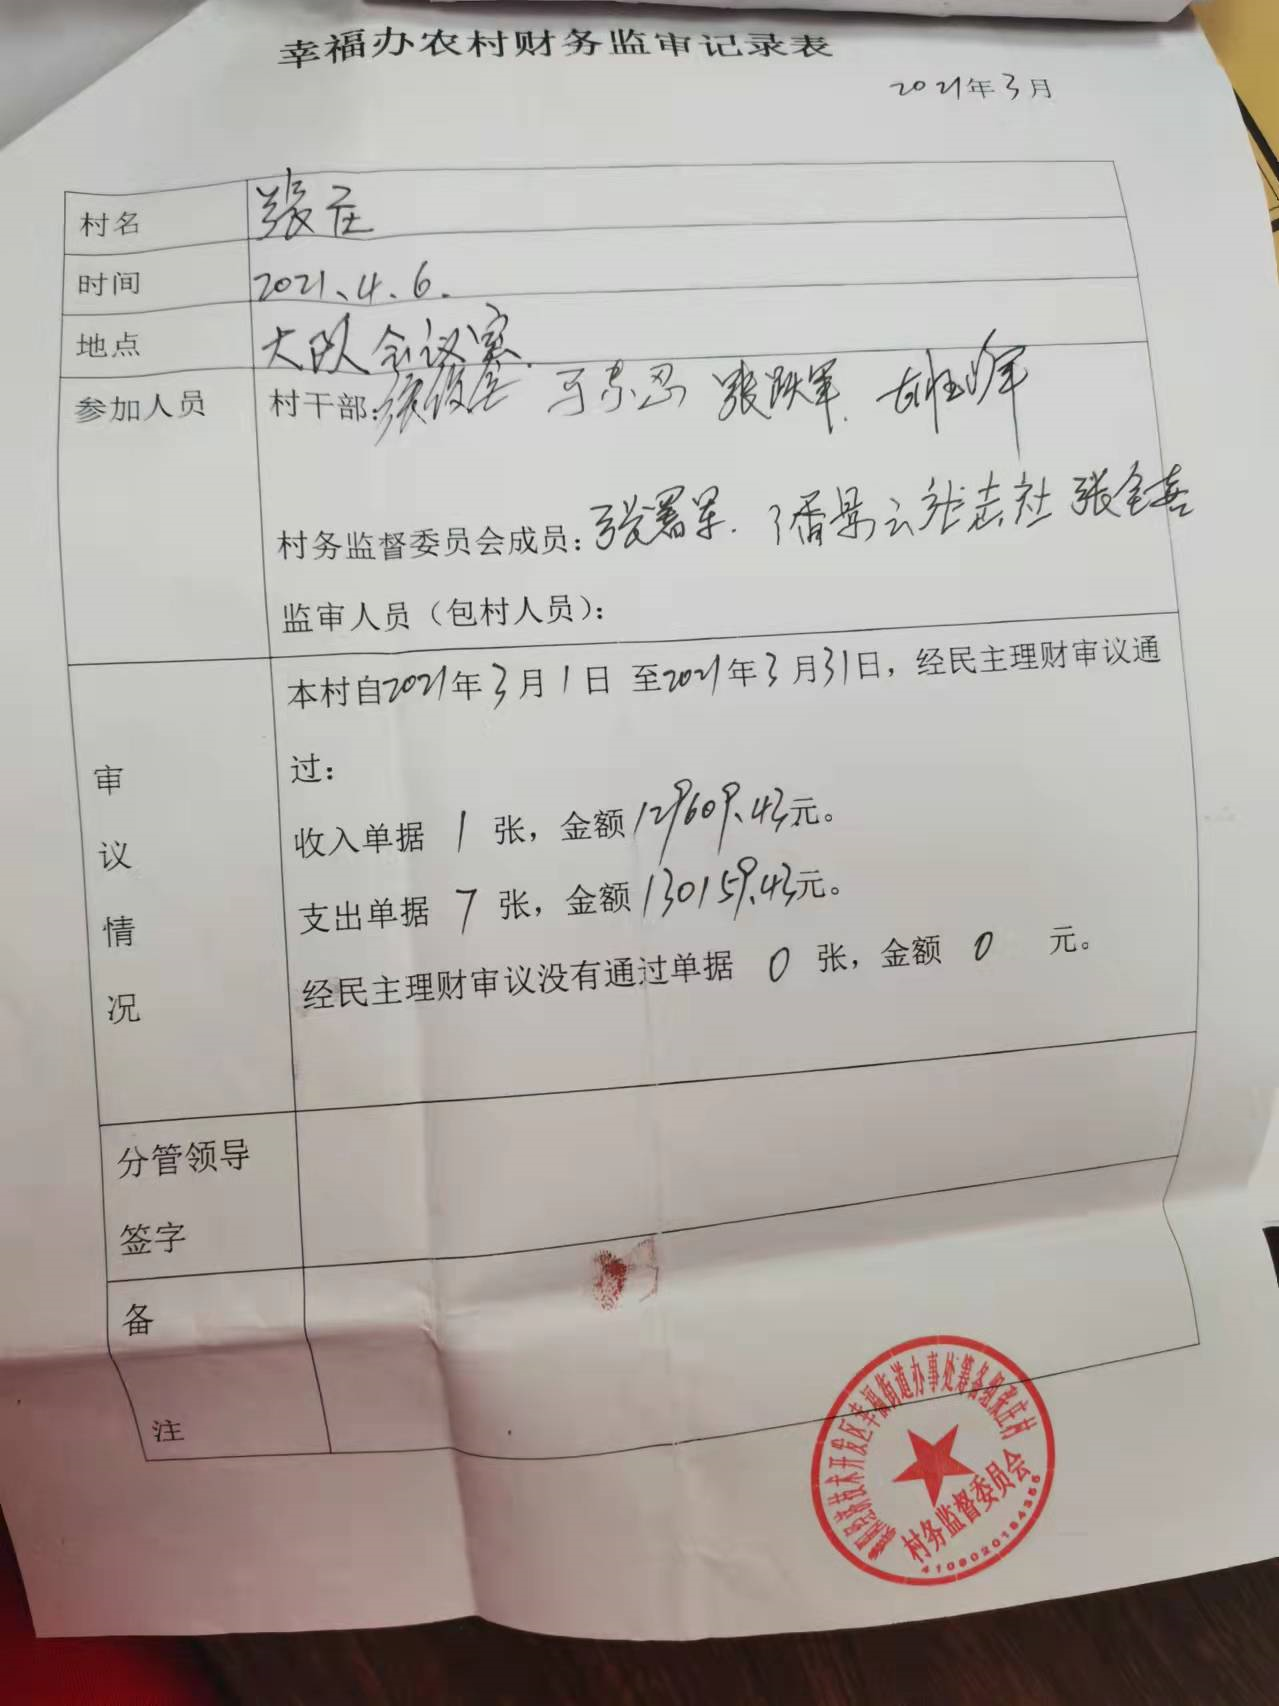 幸福办农村财务监审记录表
2021年3月
村名 张庄
时间 2021.4.6.
地点 大队会议室.
参加人员 村干部: 张铁军.
村务监督委员会成员: 张署军. 潘景云 张志社 张全喜
监审人员（包村人员）:
审议情况
本村自2021年3月1日 至2021年3月31日，经民主理财审议通
过:
收入单据 1 张，金额129609.43元。
支出单据 7 张，金额130159.43元。
经民主理财审议没有通过单据 0 张，金额 0 元。
分管领导
签字
备
注
技术开发区幸福街道办事处筹备组张庄村
村务监督委员会